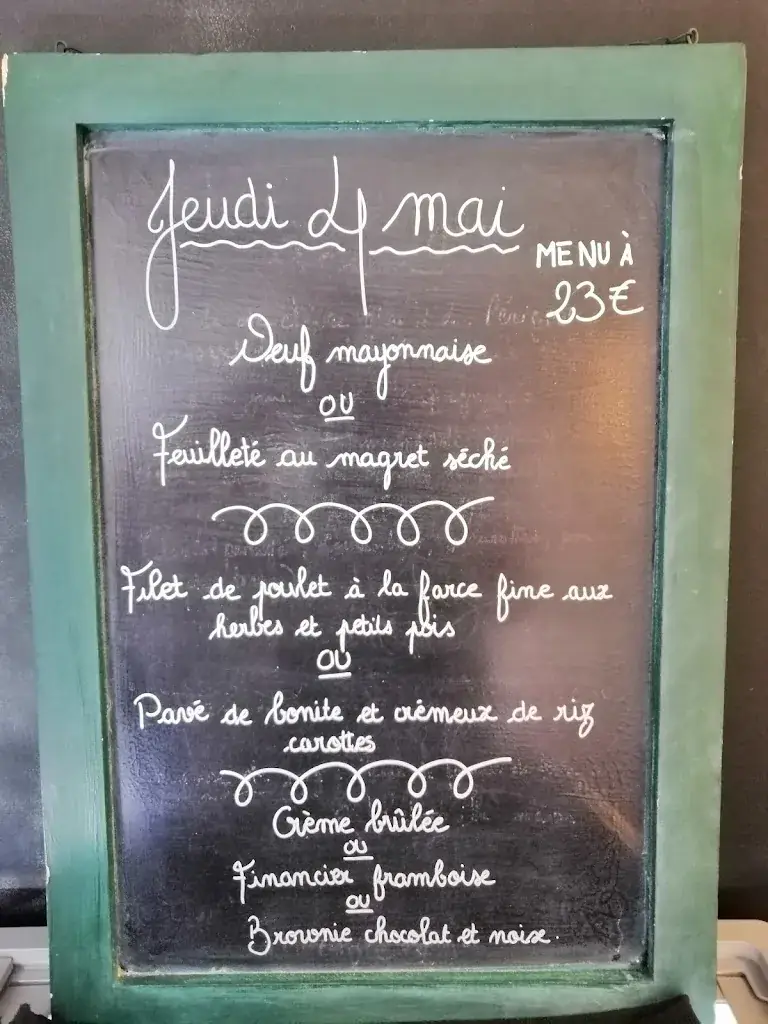 Jeudi 4 mai
MENU À
23€
Oeuf mayonnaise
OU
Feuilleté au magret séché
Filet de poulet à la farce fine aux
herbes et petits pois
OU
Pavé de bonite et crémeux de riz
carottes
Crème brûlée
OU
Financier framboise
OU
Brownie chocolat et noix.